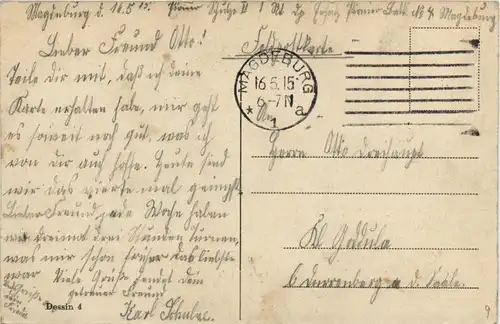 Magdeburg d. 16.5.15. Pionier II 1 Pionier Batl. No 4 Magdeburg
Lieber Freund Otto!
Feldpostkarte
Teile dir mit, daß ich deine
Karte erhalten habe, mir geht
es soweit noch gut, was ich
von dir auch hoffe. Heute sind
wir das vierte mal geimpft.
Lieber Freund jede Woche haben
wir dreimal drei Stunden turnen,
was mir schon früher das liebste
war. Viele Grüße sendet dein
getreuer Freund
Karl Schulze.
Dessin 4
MAGDEBURG
16.5.15
6-7 N
* 1 a
Herrn Otto Dreihaupt
Kl Goddula
b Dürrenberg a. d. Saale.
9